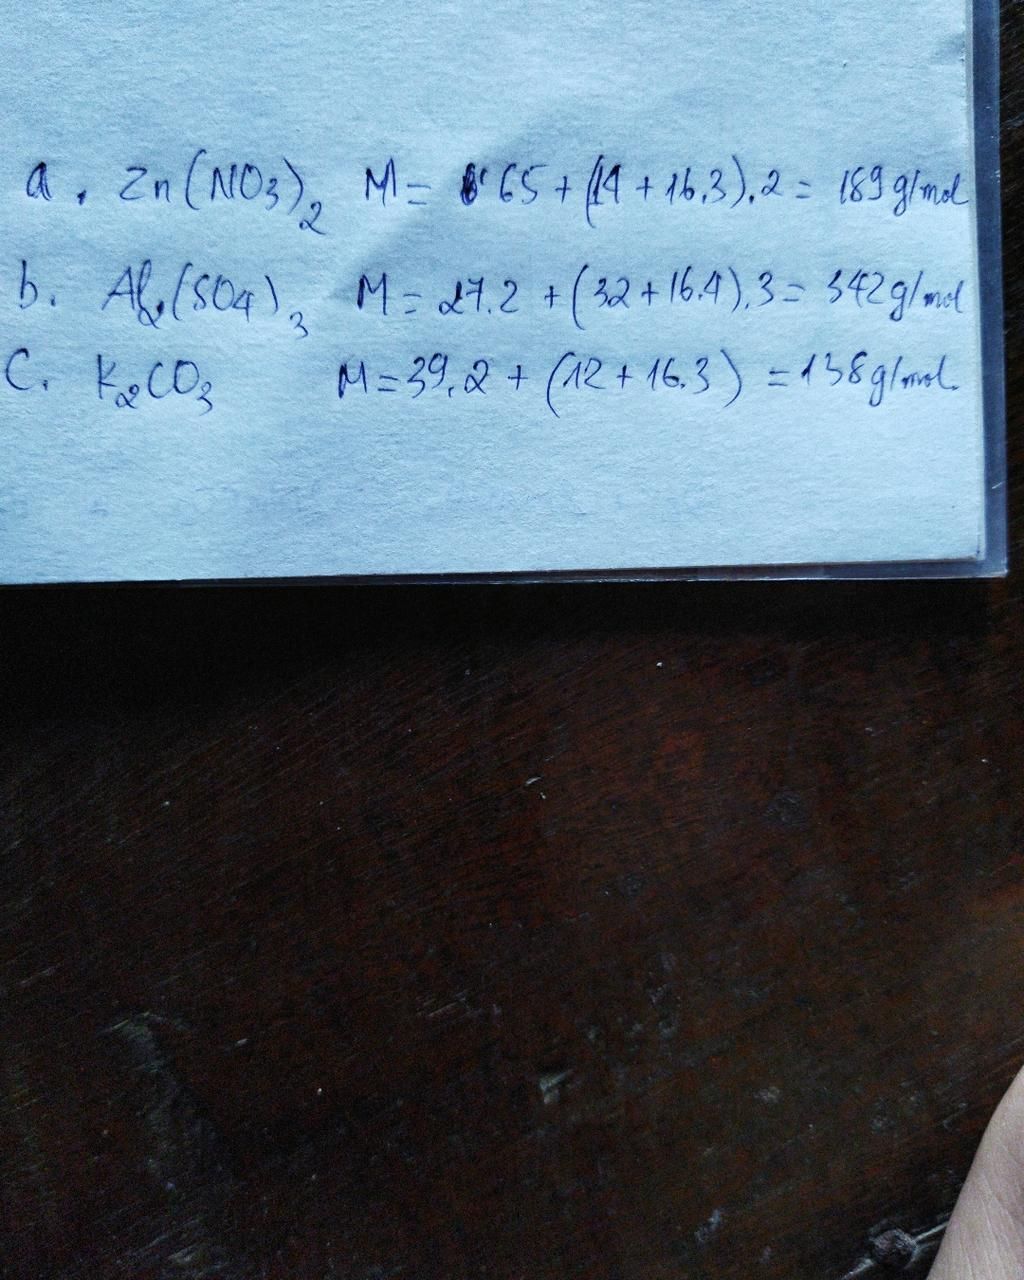 a. Zn(NO3)2 M = 65 + (14 + 16.3).2 = 189 g/mol
b. Al2(SO4)3 M = 27.2 + (32 + 16.4).3 = 342 g/mol
C. K2CO3 M = 39.2 + (12 + 16.3) = 138 g/mol.